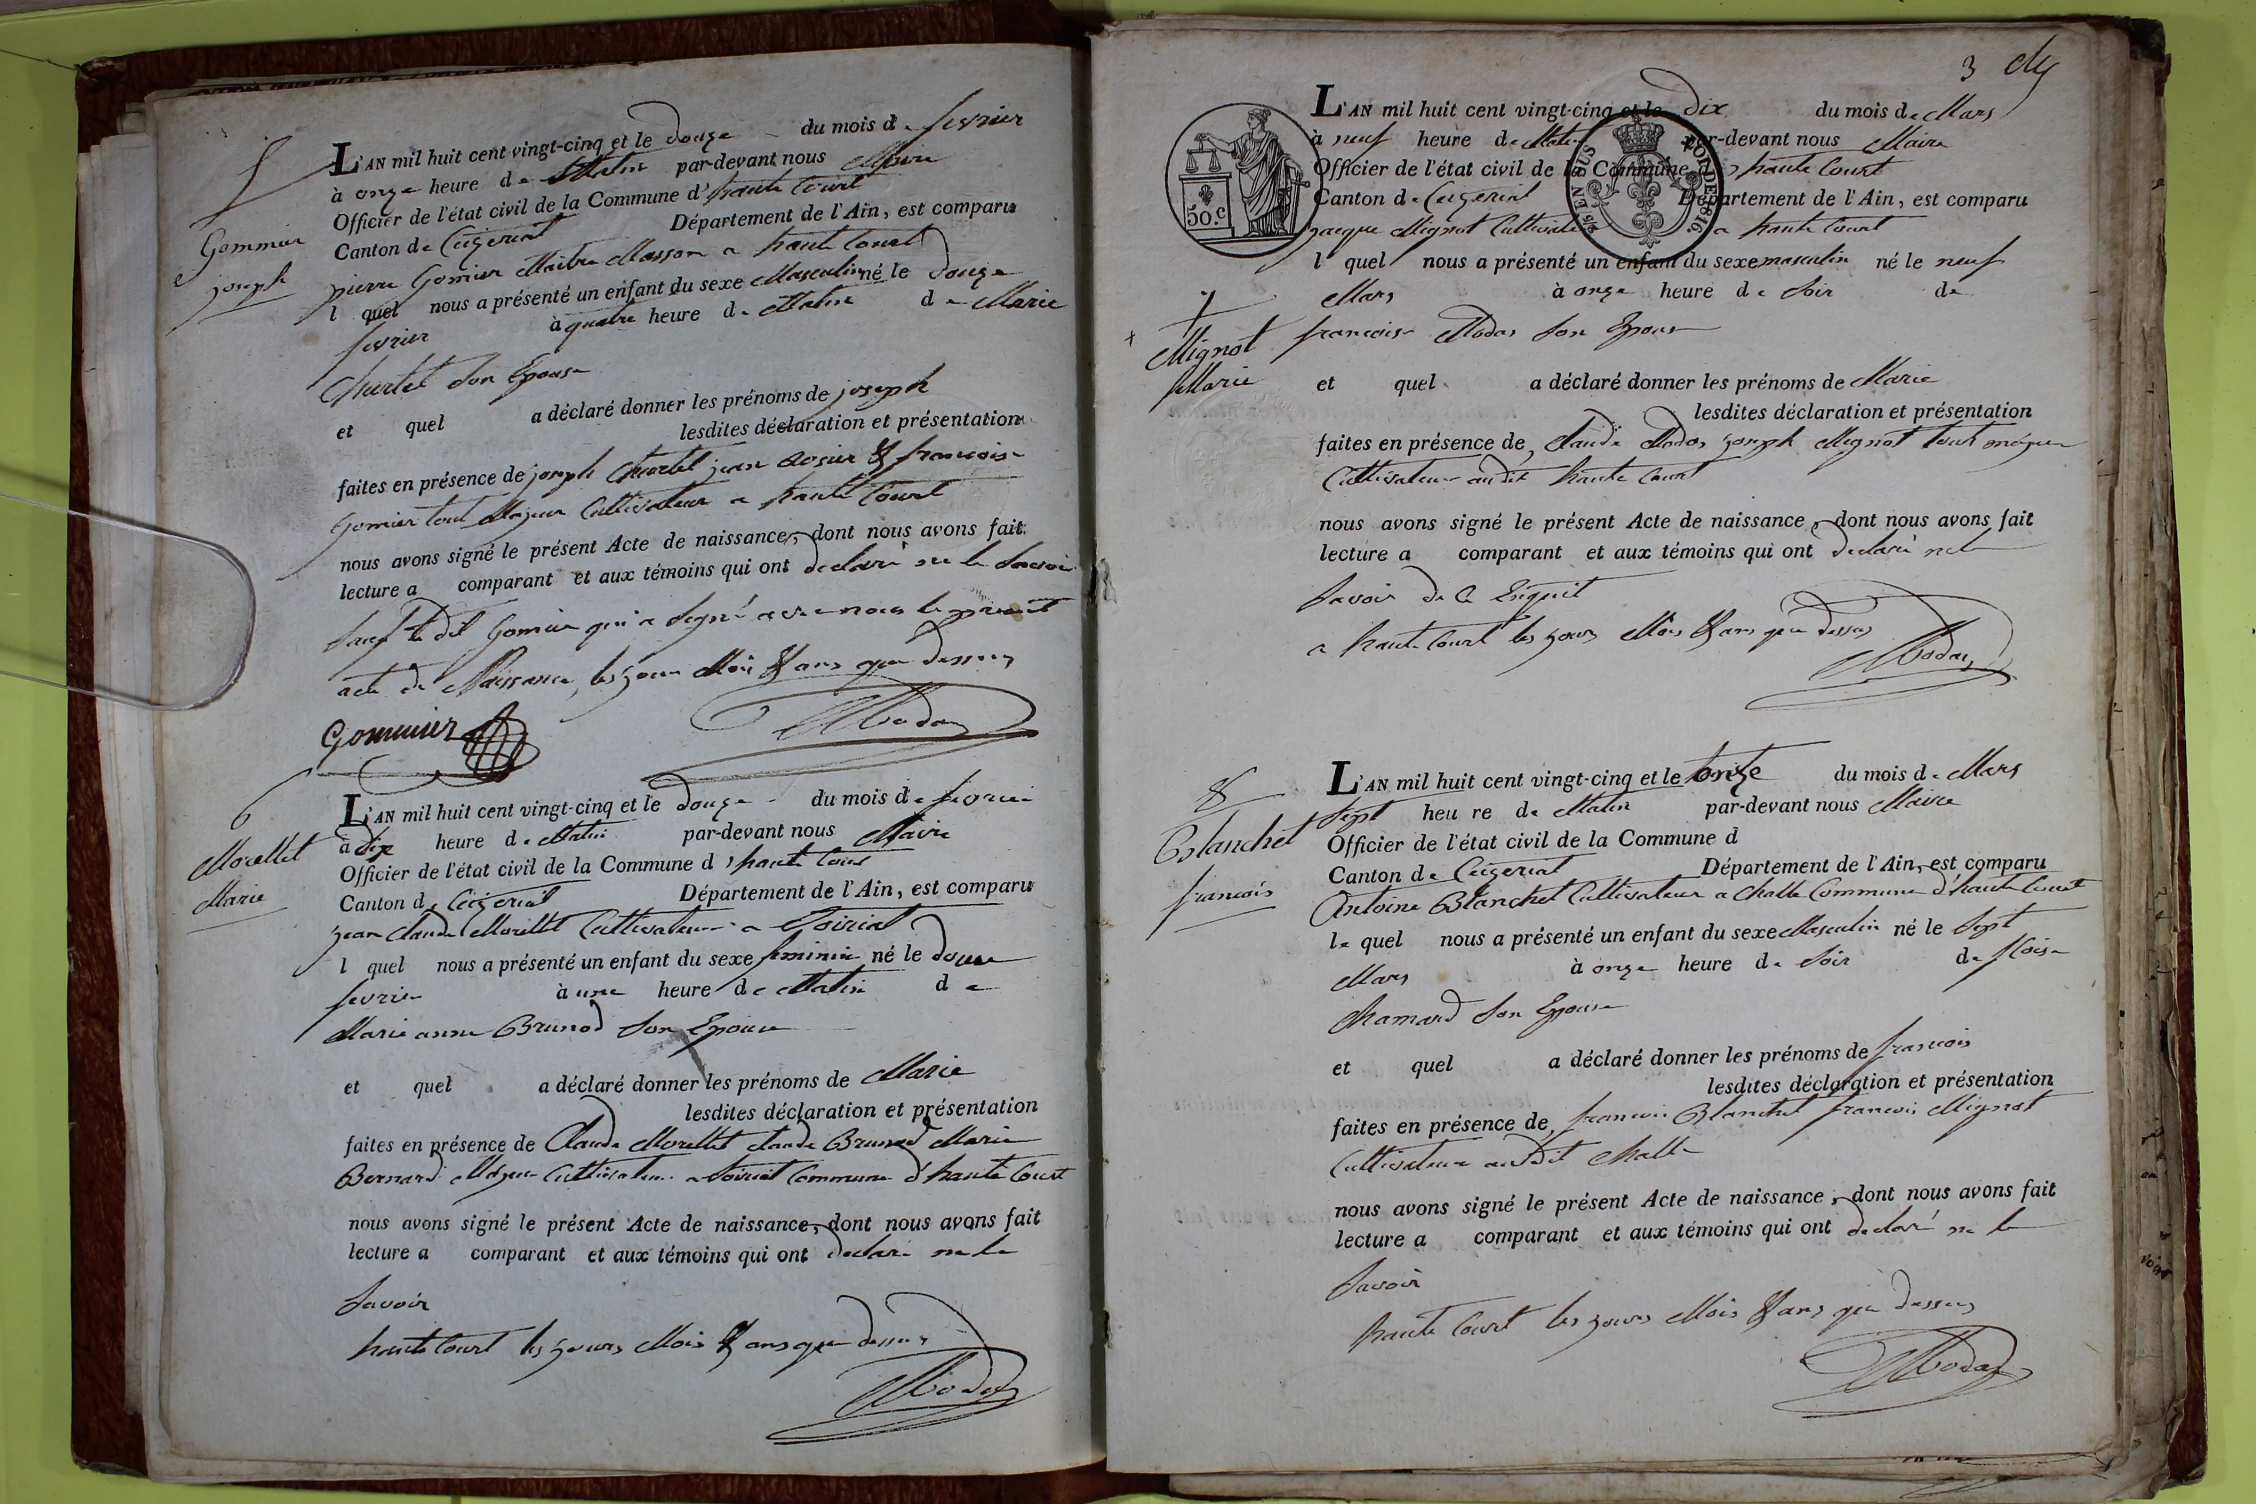 5
Gommier
joseph
L'AN mil huit cent vingt-cinq et le douze du mois de fevrier
à onze heure de Matin par-devant nous Maire
Officier de l'état civil de la Commune d'haute Court
Canton de Ceÿzeriat Département de l'Ain, est comparu
pierre Gomier Maitre Masson a haute Court
l quel nous a présenté un enfant du sexe Masculin né le douze
fevrier à quatre heure de Matin de Marie
Churlet Son Epouse
et quel a déclaré donner les prénoms de joseph
lesdites déclaration et présentation
faites en présence de joseph Churlet jean rozier & francois
Gomier tout Majeur Cultivateur a haute Court
nous avons signé le présent Acte de naissance, dont nous avons fait
lecture a comparant et aux témoins qui ont declaré ne le Savoir
Sauf le dit Gomier qui a Signé avec nous le present
acte de Naissance, les jour Moi & ans que dessus
Gommier Modas
6
Morellet
Marie
L'AN mil huit cent vingt-cinq et le douze du mois de fevrier
à dix heure de Matin par-devant nous Maire
Officier de l'état civil de la Commune d'haute Court
Canton de Ceÿzeriat Département de l'Ain, est comparu
jean Claude Morellet Cultivateur a
l quel nous a présenté un enfant du sexe feminin né le douze
fevrier à une heure de Matin de
Marie anne Brunod Son Epouse
et quel a déclaré donner les prénoms de Marie
lesdites déclaration et présentation
faites en présence de Claude Morellet claude Brunod Marie
Bernard Majeur Cultivateur a Commune d'haute Court
nous avons signé le présent Acte de naissance, dont nous avons fait
lecture a comparant et aux témoins qui ont declaré ne le
Savoir
haute Court les jours Mois & ans que dessus
Modas
3
50.c
EN SUS
LOI DE 1816.
7
Mignot
Marie
L'AN mil huit cent vingt-cinq et le dix du mois de Mars
à neuf heure de Matin par-devant nous Maire
Officier de l'état civil de la Commune d'haute Court
Canton de Ceÿzeriat Département de l'Ain, est comparu
jacque Mignot Cultivateur a haute Court
l quel nous a présenté un enfant du sexe masculin né le neuf
Mars à onze heure de Soir de
francoise Modas Son Epouse
et quel a déclaré donner les prénoms de Marie
lesdites déclaration et présentation
faites en présence de, claude Modas joseph Mignot tout majeur
Cultivateur audit haute Court
nous avons signé le présent Acte de naissance, dont nous avons fait
lecture a comparant et aux témoins qui ont declaré ne le
Savoir de Ce Enquit
a haute Court les jours Mois & ans que dessus
Modas
8
Blanchet
francois
L'AN mil huit cent vingt-cinq et le onze du mois de Mars
Sept heure de Matin par-devant nous Maire
Officier de l'état civil de la Commune d
Canton de Ceÿzeriat Département de l'Ain, est comparu
Antoine Blanchet Cultivateur a Challe Commune d'haute Court
le quel nous a présenté un enfant du sexe Masculin né le Sept
Mars à onze heure de Soir de
Chamard Son Epouse
et quel a déclaré donner les prénoms de francois
lesdites déclaration et présentation
faites en présence de, francois Blanchet francois Mignot
Cultivateur audit Challe
nous avons signé le présent Acte de naissance, dont nous avons fait
lecture a comparant et aux témoins qui ont declaré ne le
Savoir
haute Court les jours Mois & ans que dessus
Modas